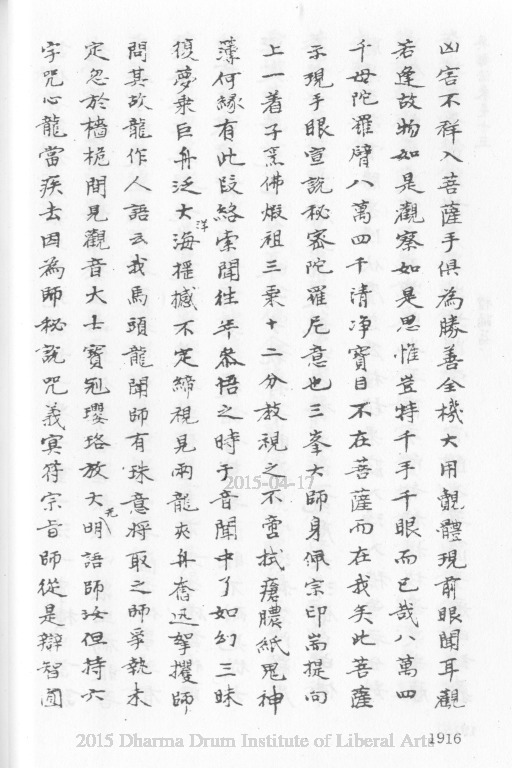 凶宅不祥入菩薩手俱為勝善全機大用覿體現前眼聞耳觀
若逢故物如是觀察如是思惟豈特千手千眼而已哉八萬四
千母陀羅臂八萬四千清淨寶目不在菩薩而在我矣此菩薩
示現手眼宣說秘密陀羅尼意也三峯大師身佩宗印耑提向
上一着子烹佛煅祖三乘十二分教視之不啻拭瘡膿紙鬼神
薄何緣有此段絡索聞往年叅悟之時于音聞中了如幻三昧
復夢乘巨舟泛大洋海搖撼不定締視見兩龍夾舟奮迅拏攫師
問其故龍作人語云我馬頭龍聞師有珠意將取之師爭執未
定忽於檣桅間見觀音大士寶冠瓔珞放大光明語師汝但持六
字咒心龍當疾去因為師秘說咒義冥符宗旨師從是辯智圓
1916
2015-04-17
2015 Dharma Drum Institute of Liberal Arts